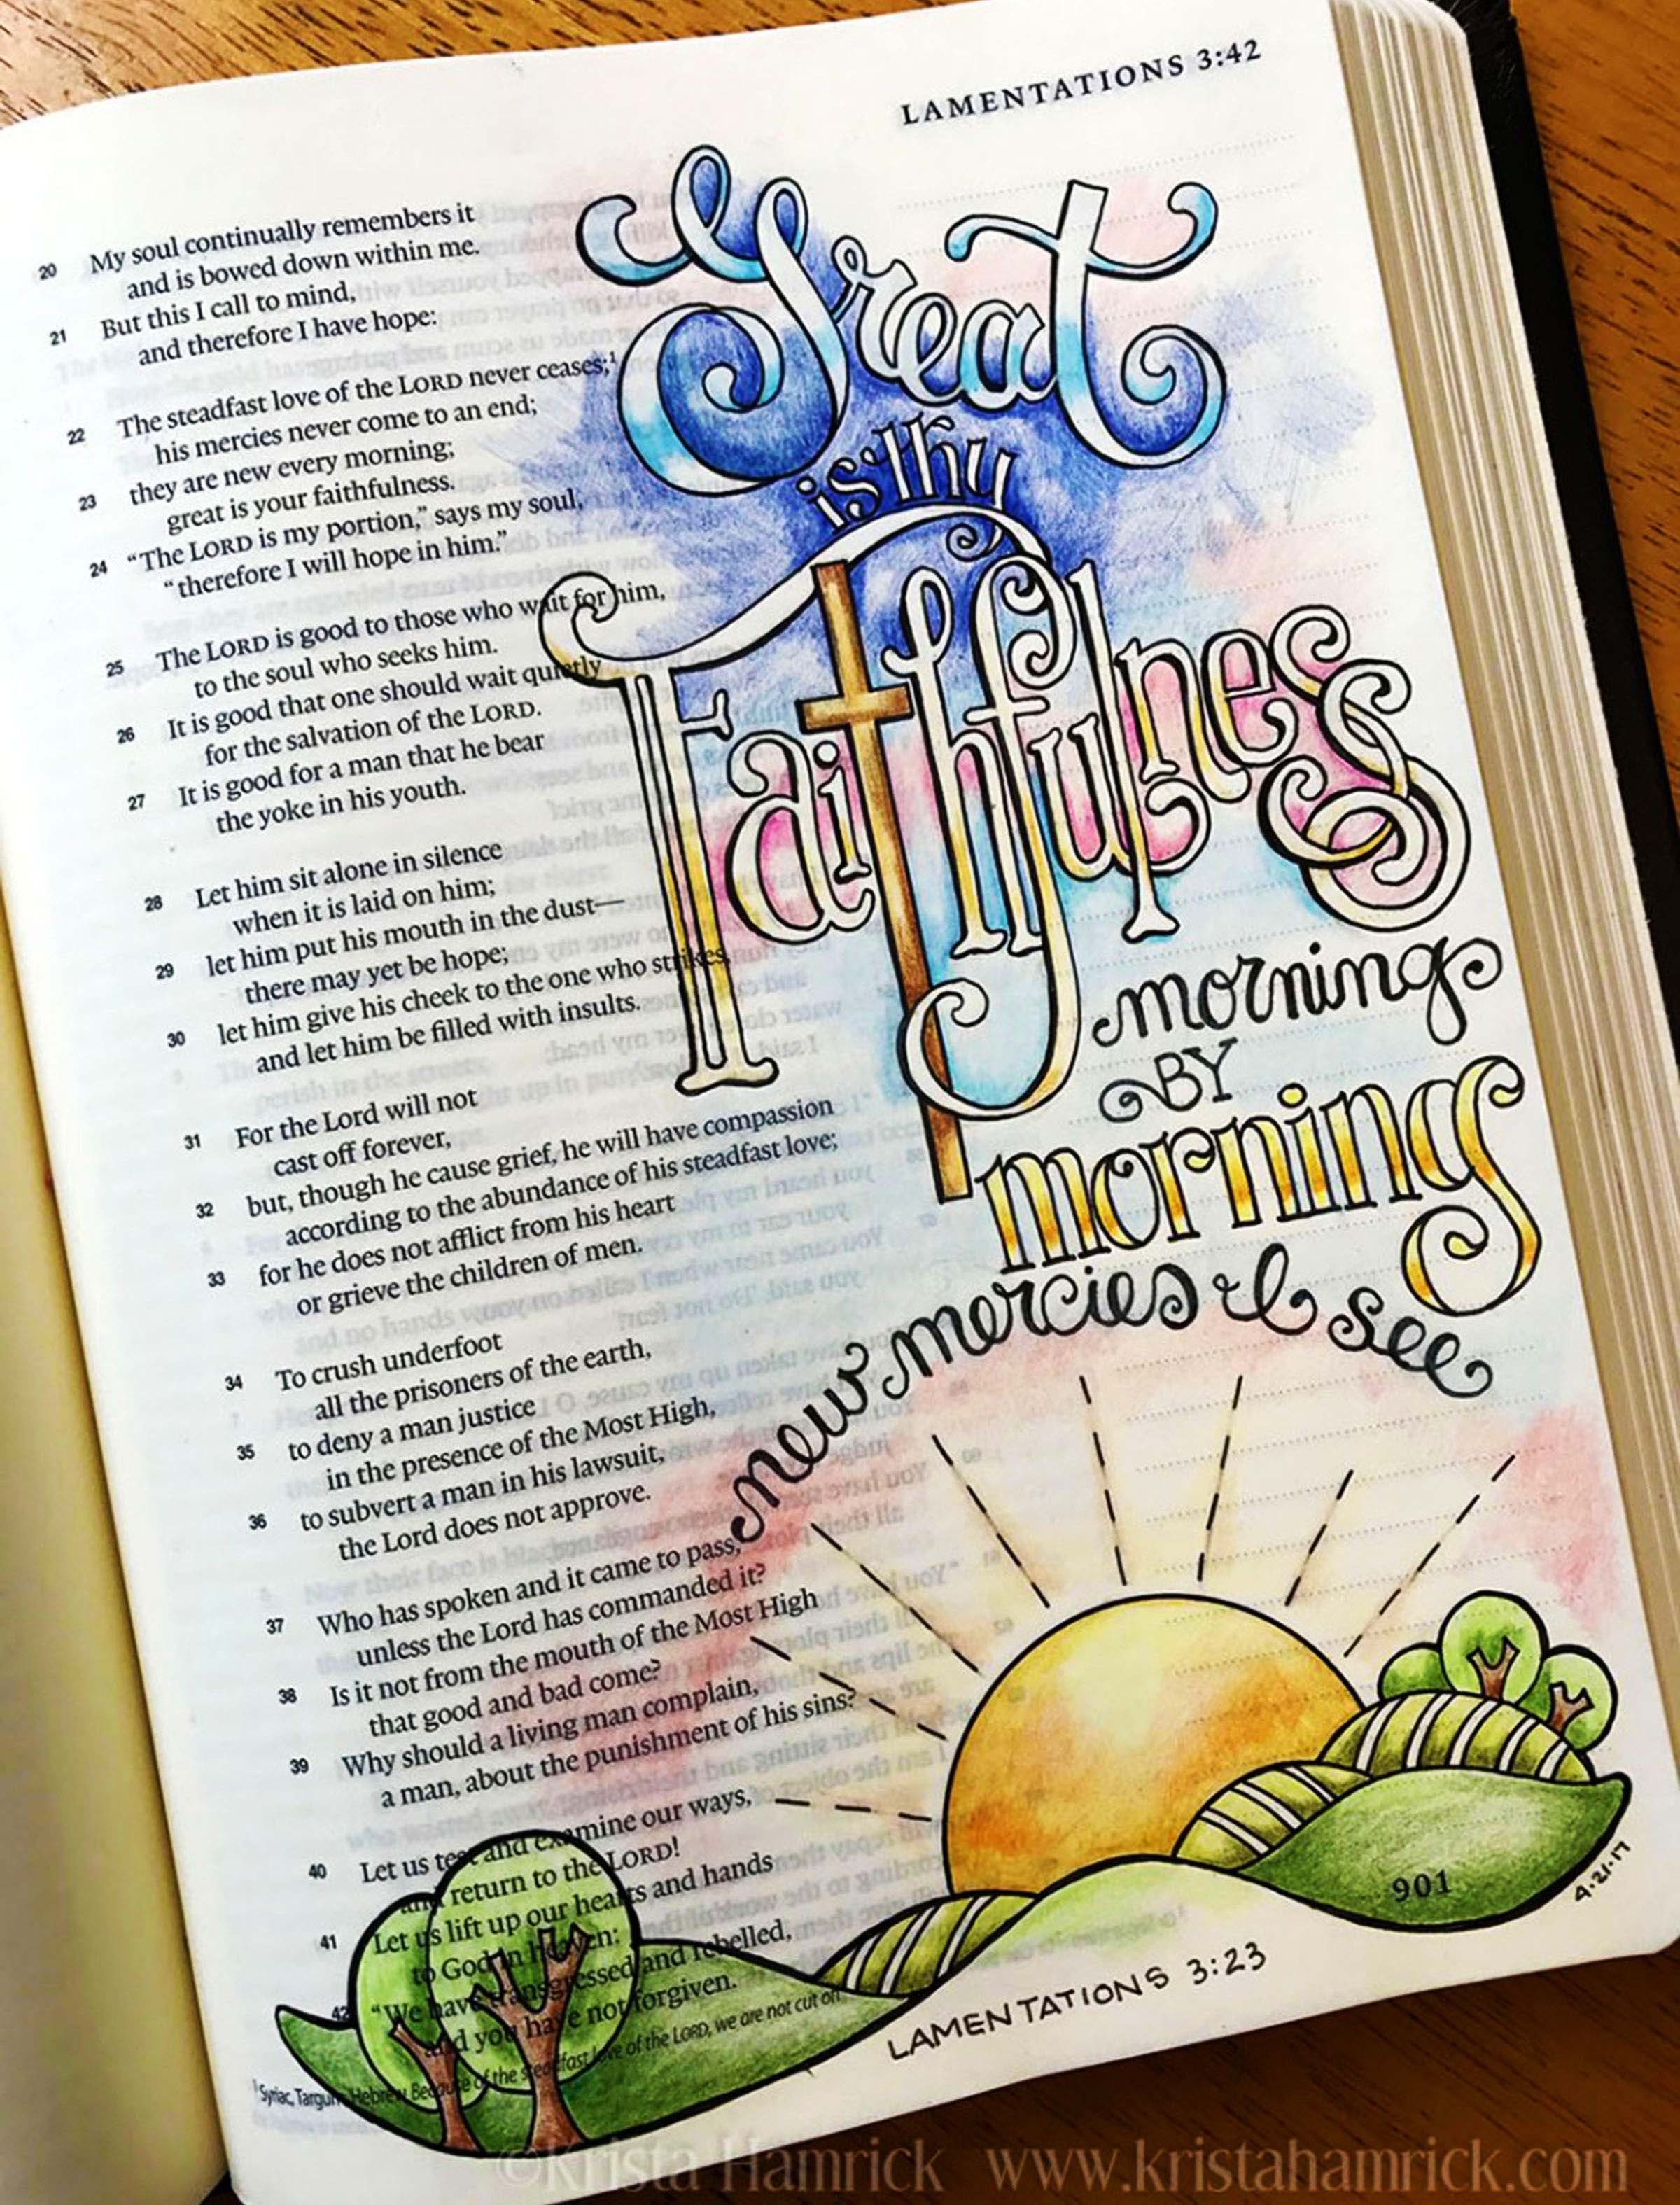 LAMENTATIONS 3:42
20 My soul continually remembers it
and is bowed down within me.
21 But this I call to mind,
and therefore I have hope:
22 The steadfast love of the LORD never ceases;1
his mercies never come to an end;
23 they are new every morning;
great is your faithfulness.
24 “The LORD is my portion,” says my soul,
“therefore I will hope in him.”
25 The LORD is good to those who wait for him,
to the soul who seeks him.
26 It is good that one should wait quietly
for the salvation of the LORD.
27 It is good for a man that he bear
the yoke in his youth.
28 Let him sit alone in silence
when it is laid on him;
29 let him put his mouth in the dust—
there may yet be hope;
30 let him give his cheek to the one who strikes,
and let him be filled with insults.
31 For the Lord will not
cast off forever,
32 but, though he cause grief, he will have compassion
according to the abundance of his steadfast love;
33 for he does not afflict from his heart
or grieve the children of men.
34 To crush underfoot
all the prisoners of the earth,
35 to deny a man justice
in the presence of the Most High,
36 to subvert a man in his lawsuit,
the Lord does not approve.
37 Who has spoken and it came to pass,
unless the Lord has commanded it?
38 Is it not from the mouth of the Most High
that good and bad come?
39 Why should a living man complain,
a man, about the punishment of his sins?
40 Let us test and examine our ways,
and return to the LORD!
41 Let us lift up our hearts and hands
to God in heaven:
42 “We have transgressed and rebelled,
and you have not forgiven.
1 Syriac, Targum; Hebrew Because of the steadfast love of the LORD, we are not cut off
Great
is thy
Faithfulness
morning
BY
morning
new mercies I see
901
4.21.17
LAMENTATIONS 3:23
©Krista Hamrick www.kristahamrick.com